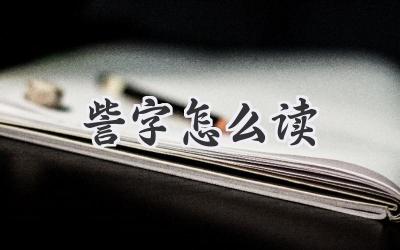 訾字怎么读